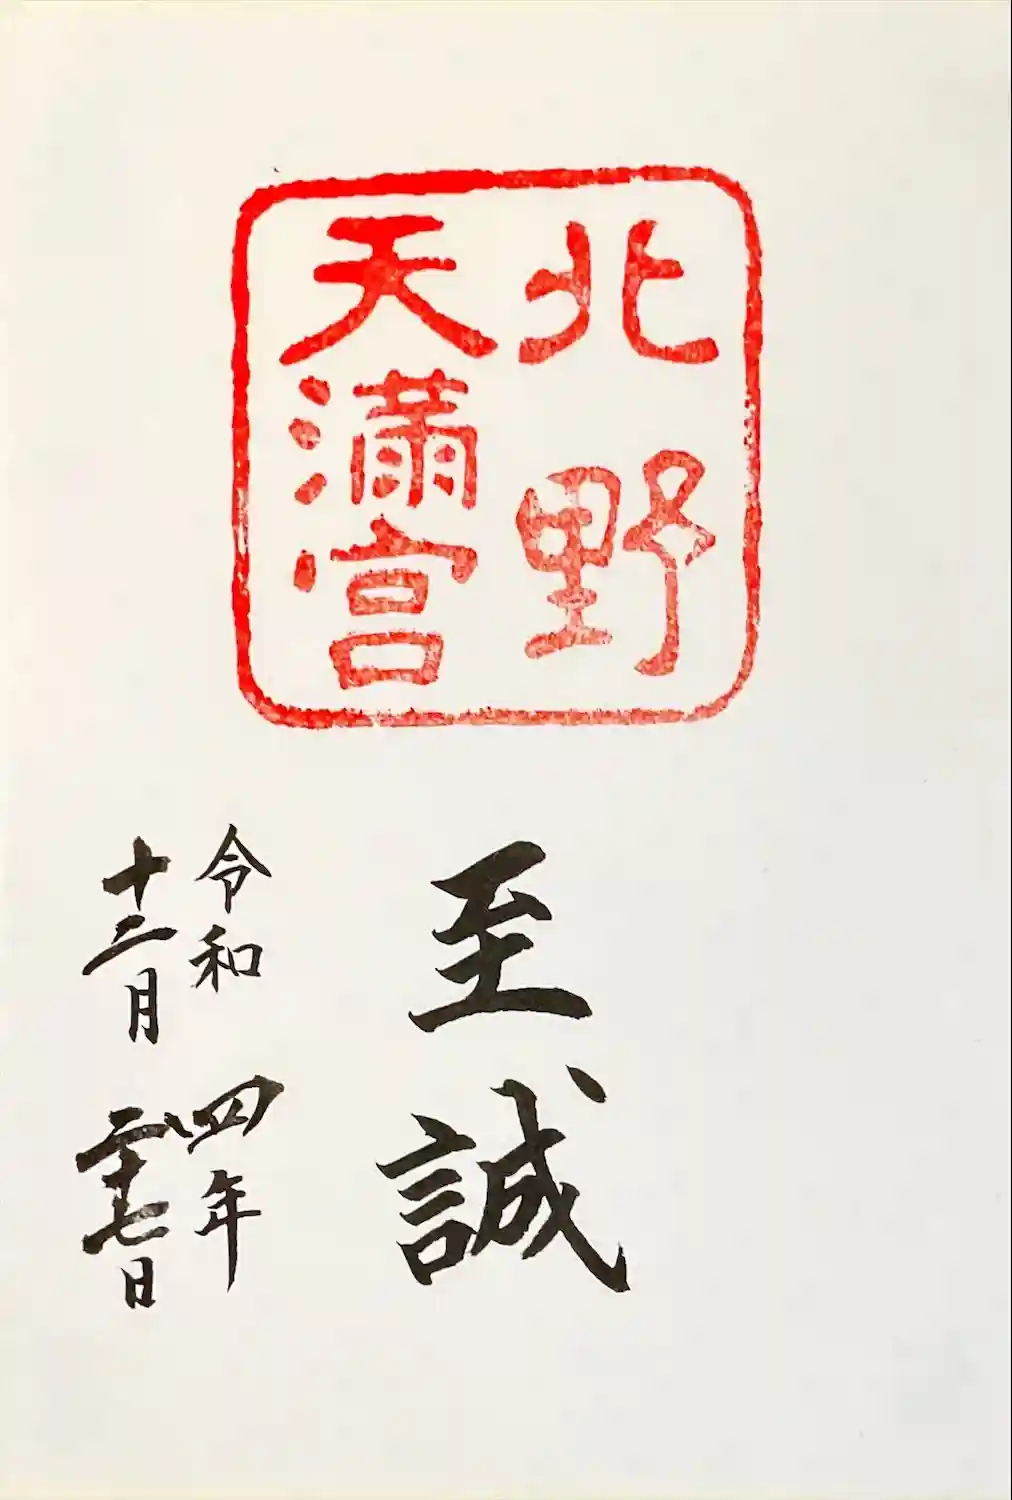 北野
天満宮
至誠
令和四年
十二月二十七日